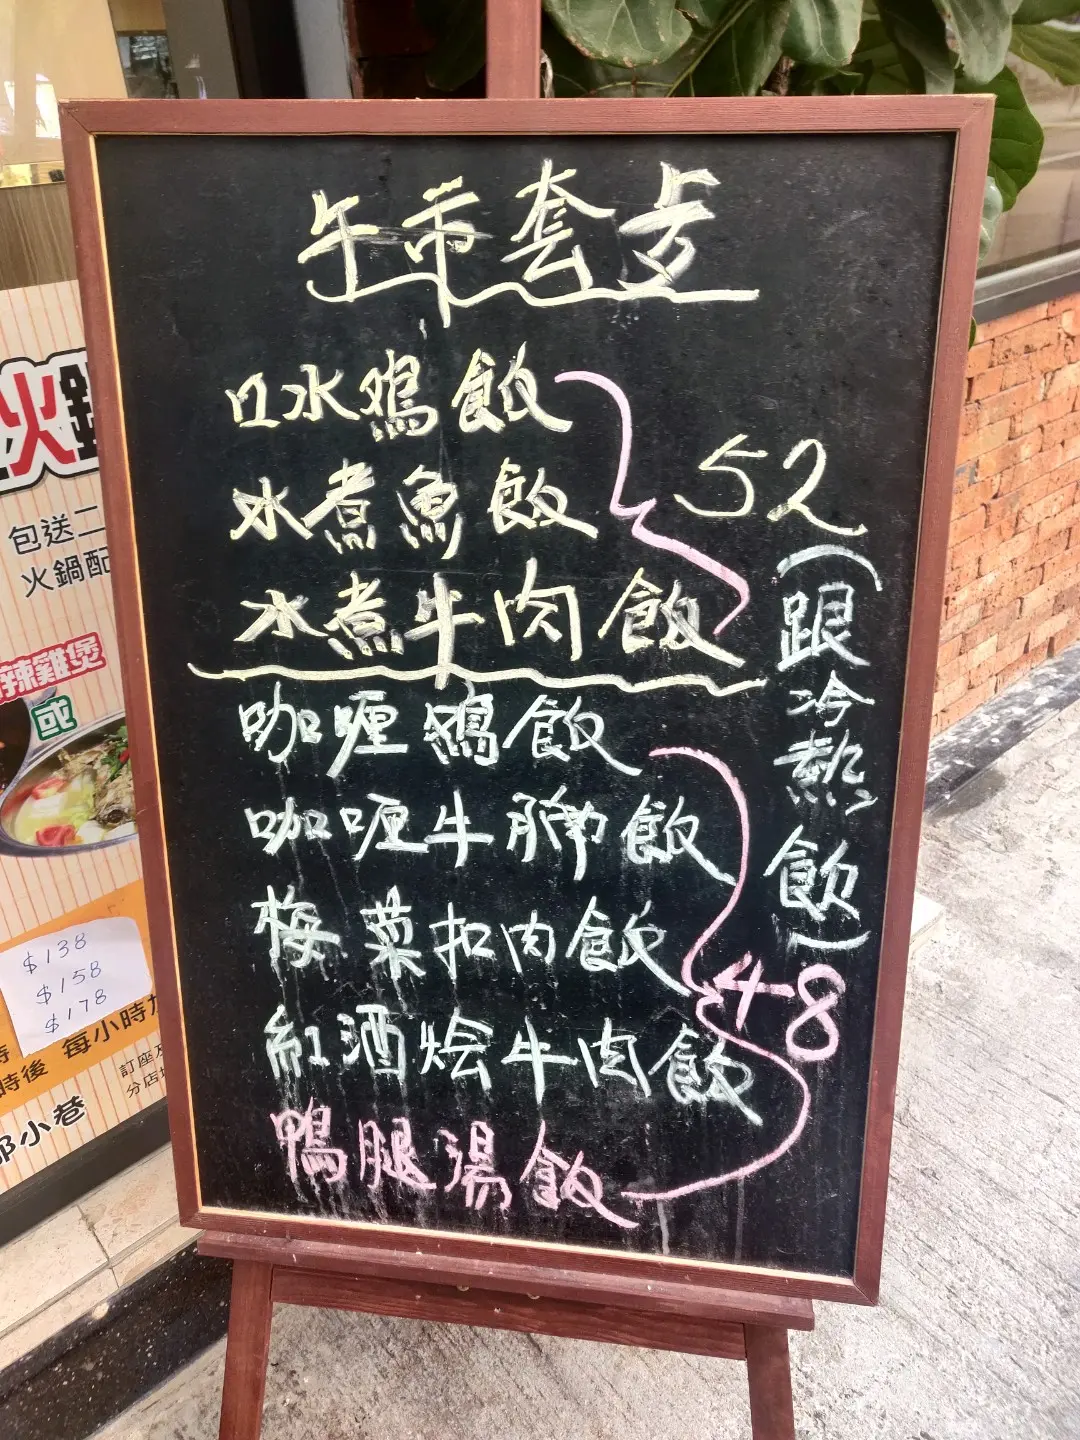 午市套歺
口水鷄飯
水煮魚飯
水煮牛肉飯
52
(跟冷熱飲)
咖喱鷄飯
咖喱牛腩飯
梅菜扣肉飯
紅酒烩牛肉飯
鴨腿湯飯
48
火
包送二
火鍋配
辣雞煲
或
$138
$158
$178
時後 每小時
訂座
分店
小巷